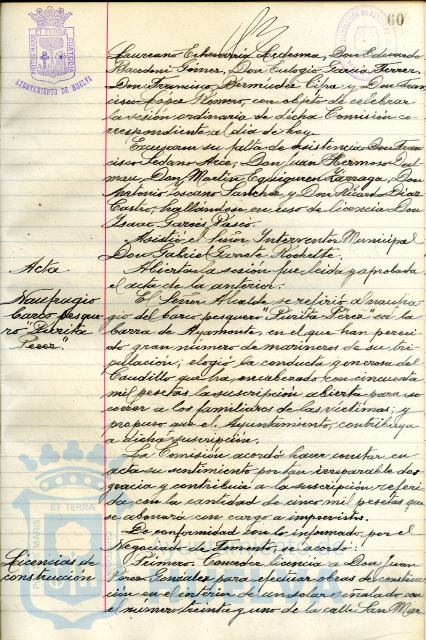 PORTUS MARIS ET TERRAE CUSTODIA
AYUNTAMIENTO DE HUELVA
60
Laureano Echevarría Ledesma, Don Eduardo
Bacedoni Gómez, Don Eulogio García Ferrer,
Don Francisco Bermúdez Cifra y Don Fran-
cisco López Romero, con objeto de celebrar
la sesión ordinaria de dicha Comisión co-
rrespondiente al día de hoy.
Excusaron su falta de asistencia Don Fran-
cisco Sedano Arce, Don Juan Hermoso Dal-
mau, Don Martín Eguiguren Zárraga, Don
Antonio Toscano Sánchez y Don Ricardo Díaz
Castro, hallándose en uso de licencia Don
Isaac Garcés Pasco.
Asistió el Señor Interventor Municipal
Don Gabriel Garrote Rochette.
Acta.
Abierta la sesión fue leída y aprobada
el acta de la anterior.
Naufragio
barco pesque
ro "Pitrita
Pérez".
El Señor Alcalde se refirió al naufra-
gio del barco pesquero "Pitrita Pérez" en la
barra de Ayamonte, en el que han pereci-
do gran número de marineros de su tri-
pulación; elogió la conducta generosa del
Caudillo que ha encabezado con cincuenta
mil pesetas la suscripción abierta para so-
correr a los familiares de las víctimas; y
propuso que el Ayuntamiento, contribuya
a dicha suscripción.
La Comisión acordó hacer constar en
acta su sentimiento por tan irreparable des
gracia y contribuir a la suscripción referi-
da con la cantidad de cinco mil pesetas que
se abonará con cargo a imprevistos.
De conformidad con lo informado por el
Negociado de Fomento, se acordó:
Licencias de
construcción
Primero. Conceder licencia a Don Juan
Pérez González para efectuar obras de construc-
ción en el interior de un solar señalado con
el número treinta y uno de la calle San Mar